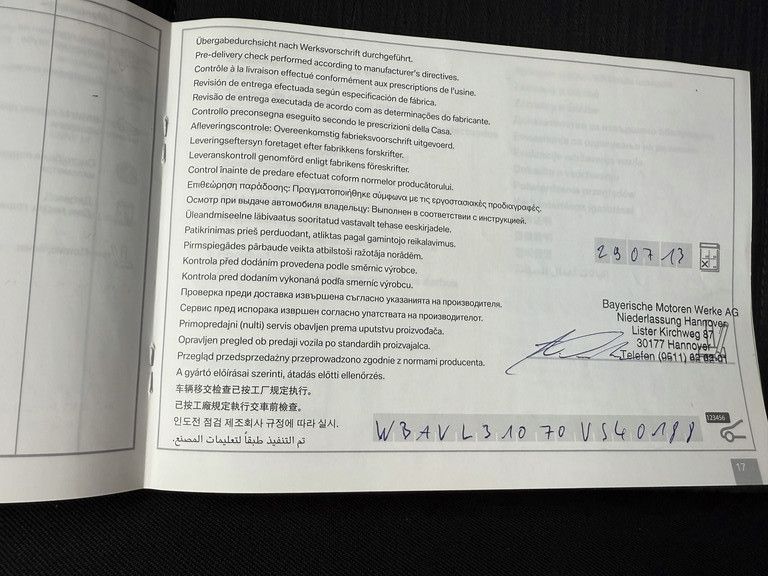 Übergabedurchsicht nach Werksvorschrift durchgeführt.
Pre-delivery check performed according to manufacturer's directives.
Contrôle à la livraison effectué conformément aux prescriptions de l'usine.
Revisión de entrega efectuada según especificación de fábrica.
Revisão de entrega executada de acordo com as determinações do fabricante.
Controllo preconsegna eseguito secondo le prescrizioni della Casa.
Afleveringscontrole: Overeenkomstig fabrieksvoorschrift uitgevoerd.
Leveringseftersyn foretaget efter fabrikkens forskrifter.
Leveranskontroll genomförd enligt fabrikens föreskrifter.
Control înainte de predare efectuat coform normelor producătorului.
Επιθεώρηση παράδοσης: Πραγματοποιήθηκε σύμφωνα με τις εργοστασιακές προδιαγραφές.
Осмотр при выдаче автомобиля владельцу: Выполнен в соответствии с инструкцией.
Üleandmiseelne läbivaatus sooritatud vastavalt tehase eeskirjadele.
Patikrinimas prieš perduodant, atliktas pagal gamintojo reikalavimus.
Pirmspiegādes pārbaude veikta atbilstoši ražotāja norādēm.
Kontrola před dodáním provedena podle směrnic výrobce.
Kontrola pred dodaním vykonaná podľa smerníc výrobcu.
Проверка преди доставка извършена съгласно указанията на производителя.
Сервис пред испорака извршен согласно упатствата на производителот.
Primopredajni (nulti) servis obavljen prema uputstvu proizvođača.
Opravljen pregled ob predaji vozila po standardih proizvajalca.
Przegląd przedsprzedażny przeprowadzono zgodnie z normami producenta.
A gyártó előírásai szerinti, átadás előtti ellenőrzés.
车辆移交检查已按工厂规定执行。
已按工廠規定執行交車前檢查。
인도전 점검 제조회사 규정에 따라 실시.
تم التنفيذ طبقاً لتعليمات المصنع.
29 07 13
Bayerische Motoren Werke AG
Niederlassung Hannover
Lister Kirchweg 87
30177 Hannover
Telefon (0511) 62 62-01
123456
WBAVL31070VS40188
17